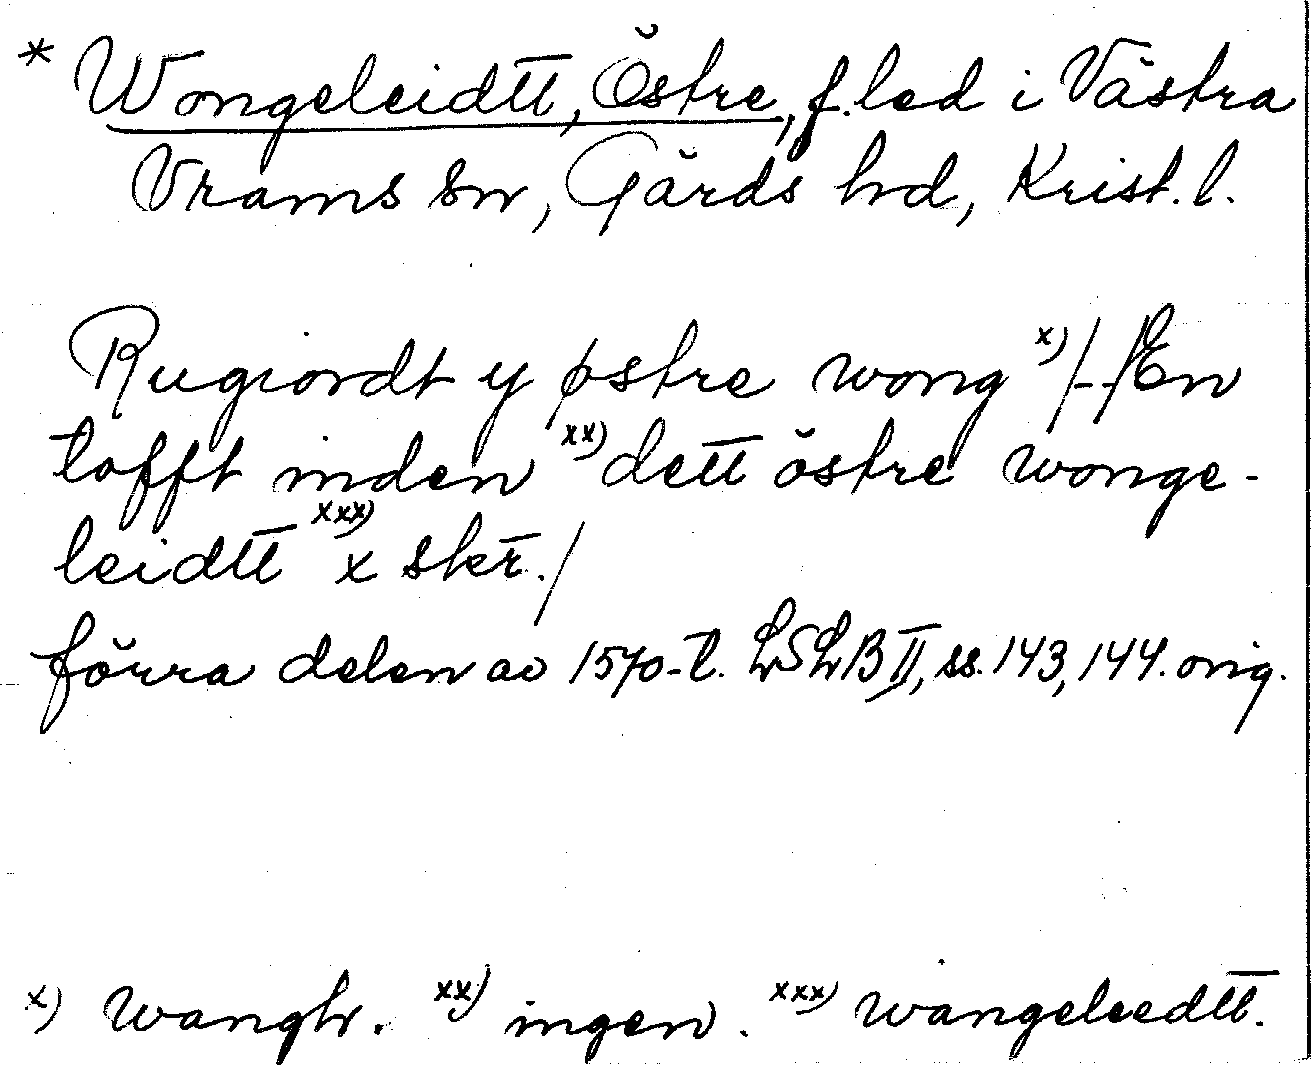 * Wongeleidtt, Östre, f. led i Västra
Vrams sn, Gärds hd, Krist. l.
Rugiordt y østre wong x) /--/ En
tofft inden xx) dett östre wonge-
leidtt xxx) x skr./
förra delen av 1570-t. LSLB II, ss. 143, 144. orig.
x) wangh. xx) ingen. xxx) wangeleedtt.